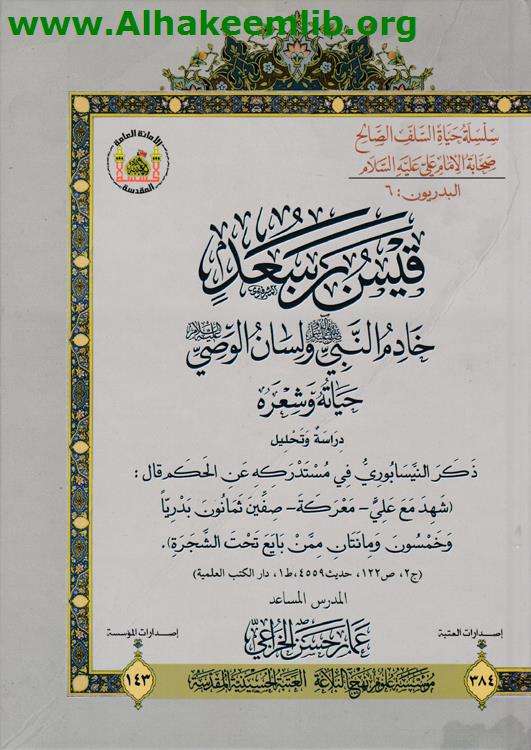 www.Alhakeemlib.org
الأمانة العامة
المقدسة
سلسلة حياة السلف الصالح
صحابة الإمام علي عليه السلام
البدريون: ٦
قيس بن سعد
خادم النبي ولسان الوصي
حياته وشعره
دراسة وتحليل
ذكر النيسابوري في مستدركه عن الحكم قال:
(شهد مع علي - معركة - صفين ثمانون بدرياً
وخمسون ومائتان ممن بايع تحت الشجرة).
(ج٢، ص١٢٢، حديث٤٥٥٩، ط١، دار الكتب العلمية)
المدرس المساعد
عمار حسن الخزاعي
إصدارات العتبة
٣٨٤
إصدارات المؤسسة
١٤٣
مؤسسة علوم نهج البلاغة العتبة الحسينية المقدسة